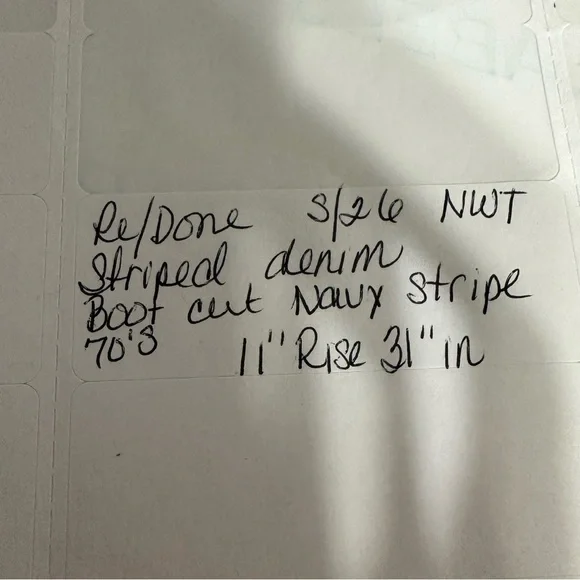 Re/Done S/26 NWT
Striped denim
Boot cut Navy Stripe
70's 11" Rise 31" in